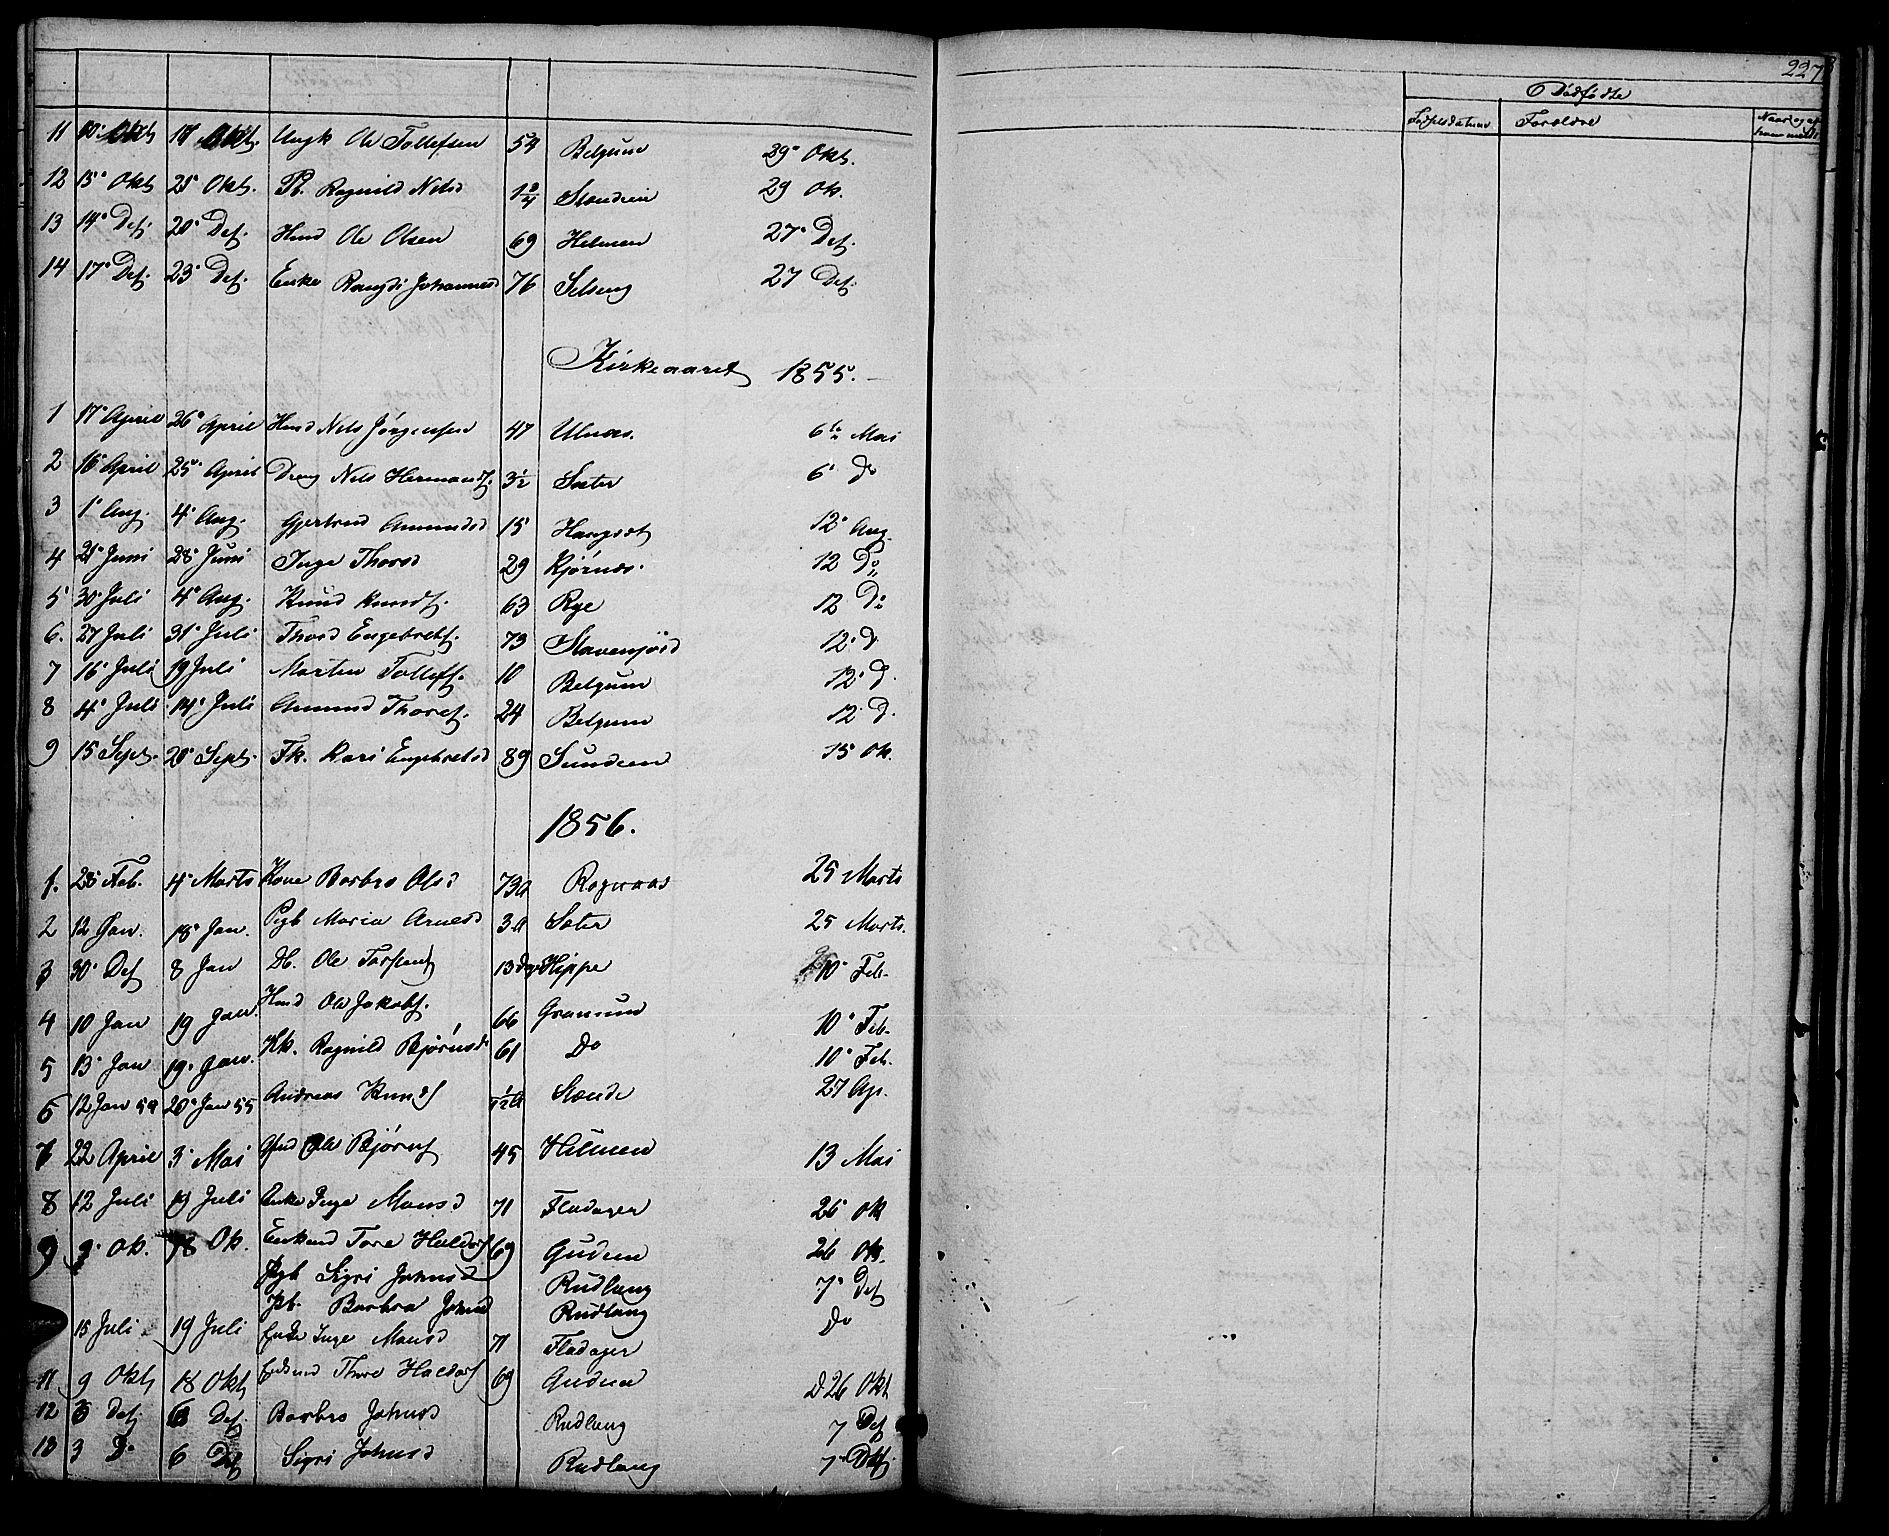 227
Dødfødte
Fødselsdatum Forældre
11 10 Okt 18 Okt. Ungk Ole Tollefsen 54 Belgum 29 Okt.
12 15 Okt 21 Okt. Pb. Ragnild Nilsd 1 3/4 Stendein 29 Ok.
13 14 Des. 20 Des. Hmd Ole Olsen 69 Helmen 27 Des.
14 17 Des. 23 Des. Enke Rangdi Johannesd 76 Selseng 27 Des.
Kirkeaaret 1855.
1 17 April 26 April Hmd Nils Jörgensen 47 Ulnæs. 6te Mai
2 16 April 25 April Dreng Nils Hermansf. 3 1/2 Sæter 6 Do
3 1 Aug. 4 Aug. Gjertrud Amundsd 15 Haugsrt 12 Aug.
4 21 Juni 28 Juni Inge Thorsd 29 Kjørnæs. 12 Do
5 30 Juli 4 Aug. Knud Knudf. 63 Rye 12 Do
6. 27 Juli 31 Juli Thord Engebretf. 73 Stavenjord 12 D
7 16 Juli 19 Juli Marten Tollefs. 10 Belgum 12 D.
8 4 Juli 14 Juli Amund Thoresf. 24 Belgum 12 D.
9 15 Sept. 20 Sept. Fk. Kari Engebretsd 89 Sundeen 15 Ok.
1856.
1. 28 Feb. 4 Marts Kone Barbro Olsd 73 a Rognaas 25 Marts
2 12 Jan. 18 Jan. Pigb Maria Arnesd 3 a Sæter 25 Marts.
3 30 Des 8 Jan Db. Ole Torstenf 13 Dage Hippe 10 Feb.
4 10 Jan 19 Jan. Hmd Ole Jakobf. 66 Granum 10 Feb.
5 13 Jan 19 Jan. Kk. Ragnild Bjørnsd 61 Do 10 Feb.
6 12 Jan 20 Jan 55 Andreas Knudf Stende 27 Ap.
7 22 April 3 Mai Gmd Ole Bjørnf 45 Helmen 13 Mai
8 12 Juli 19 Juli Enke Inge Monsd 71 Fladager 26 Ok
9 9 Ok. 18 Ok. Enkmd Tore Haldorf 69 Gudem 26 Ok.
Pgb Sigri Johnsd Rudlang 7 Des
Pb. Barbra Johnsd Rudlang Do
15 Juli 19 Juli Enke Inge Monsd 71 Fladager
11 9 Okt 18 Okt Enkmd Thore Haldorf 69 Gudem D 26 Okt
12 3 Des. 6 Des. Barbro Johnsd Rudlang 7 Des
13 3 Do 6 Des Sigri Johnsd Rudlang 7 Des